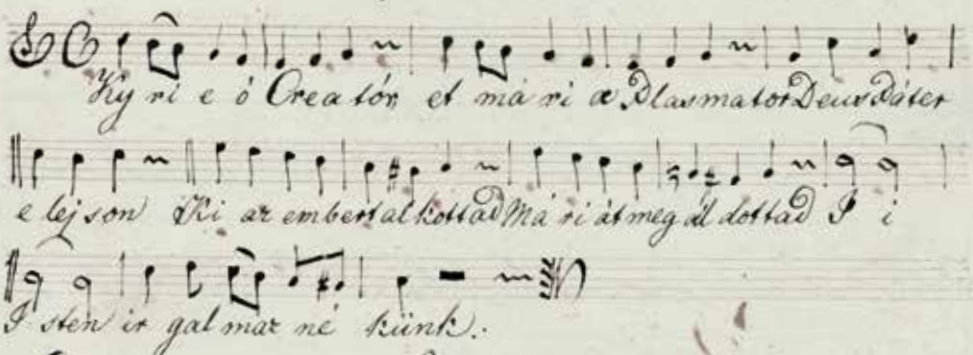 Ky ri e ó Creatór, et má ri æ Plasmator Deus Páter
e lej son Ki az embert alkottad Má ri át meg ál dottad I i
I sten ir gal maz né künk.